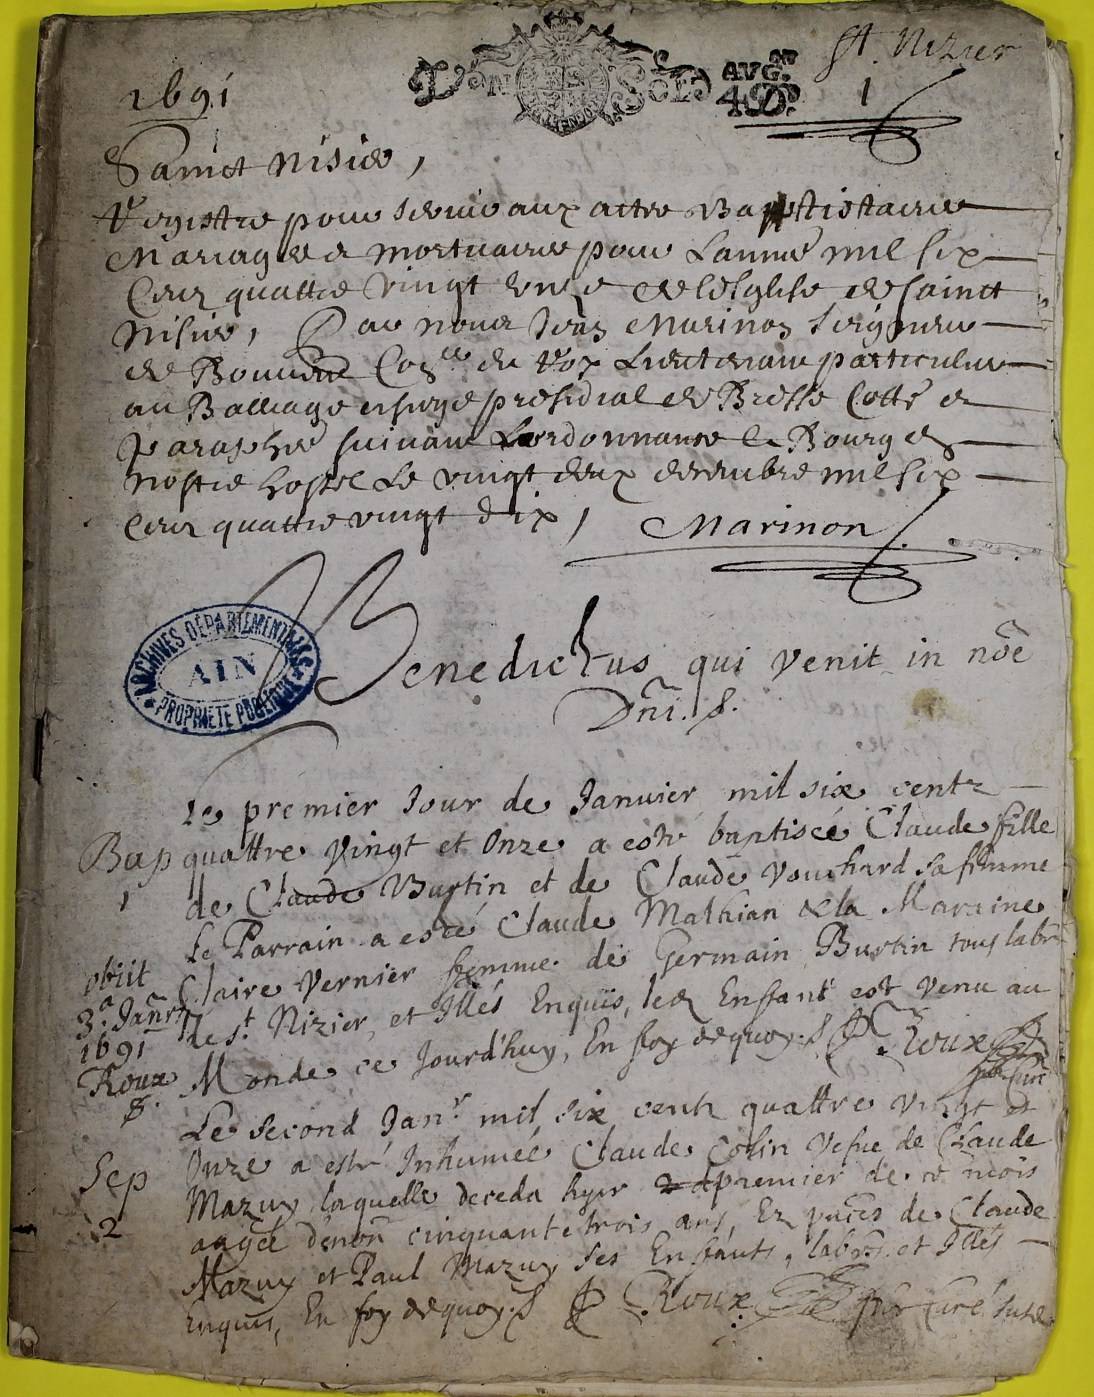 St. Nizier
1691
AVG.ON
4 SOLS
1
Sainct Nisier,
Registre pour servir aux actes Baptistaires
Mariages et mortuaires pour Lannee mil six
Cens quattre vingt unze de leglise de sainct
Nisier, Par nous Jean Marinon Seigneur
de Con.er du Roy Lieutenant particulier
au Balliage et siege presidial de Bresse Cotté et
Paraphé suivant Lordonnance a Bourg en
nostre hostel Le vingt deux decembre mil six
Cens quattre vingt dix, Marinon
ARCHIVES DÉPARTEMENTALES
AIN
PROPRIÉTÉ PUBLIQUE
Benedictus qui venit in nõe
Dñi. S.
Le premier Jour de Janvier mil six cents
Bap quattre vingt et Onze a esté baptisée Claude fille
1 de Claude Burtin et de Claude Vouchard sa femme
Le Parrain a esté Claude Mathian & la Maraine
obiit Claire Vernier femme de Germain Burtin tous labrs
3.a Janrii de st. Nizier, et Illés Enquis, led Enfant est venu au
1691
Roux Monde ce Jourd'huy, En foy de quoy. S Roux
S. curé
Le second Janr. mil six cents quattre vingt et
Sep Onze a esté Inhumée Claude Colin vefue de Claude
2 Mazuy laquelle deceda hyer premier de ce mois
aagée d'enõn cinquante trois ans, En pñces de Claude
Mazuy et Paul Mazuy ses Enfants, labrs. et Illés
Enquis, En foy de quoy. S Roux curé